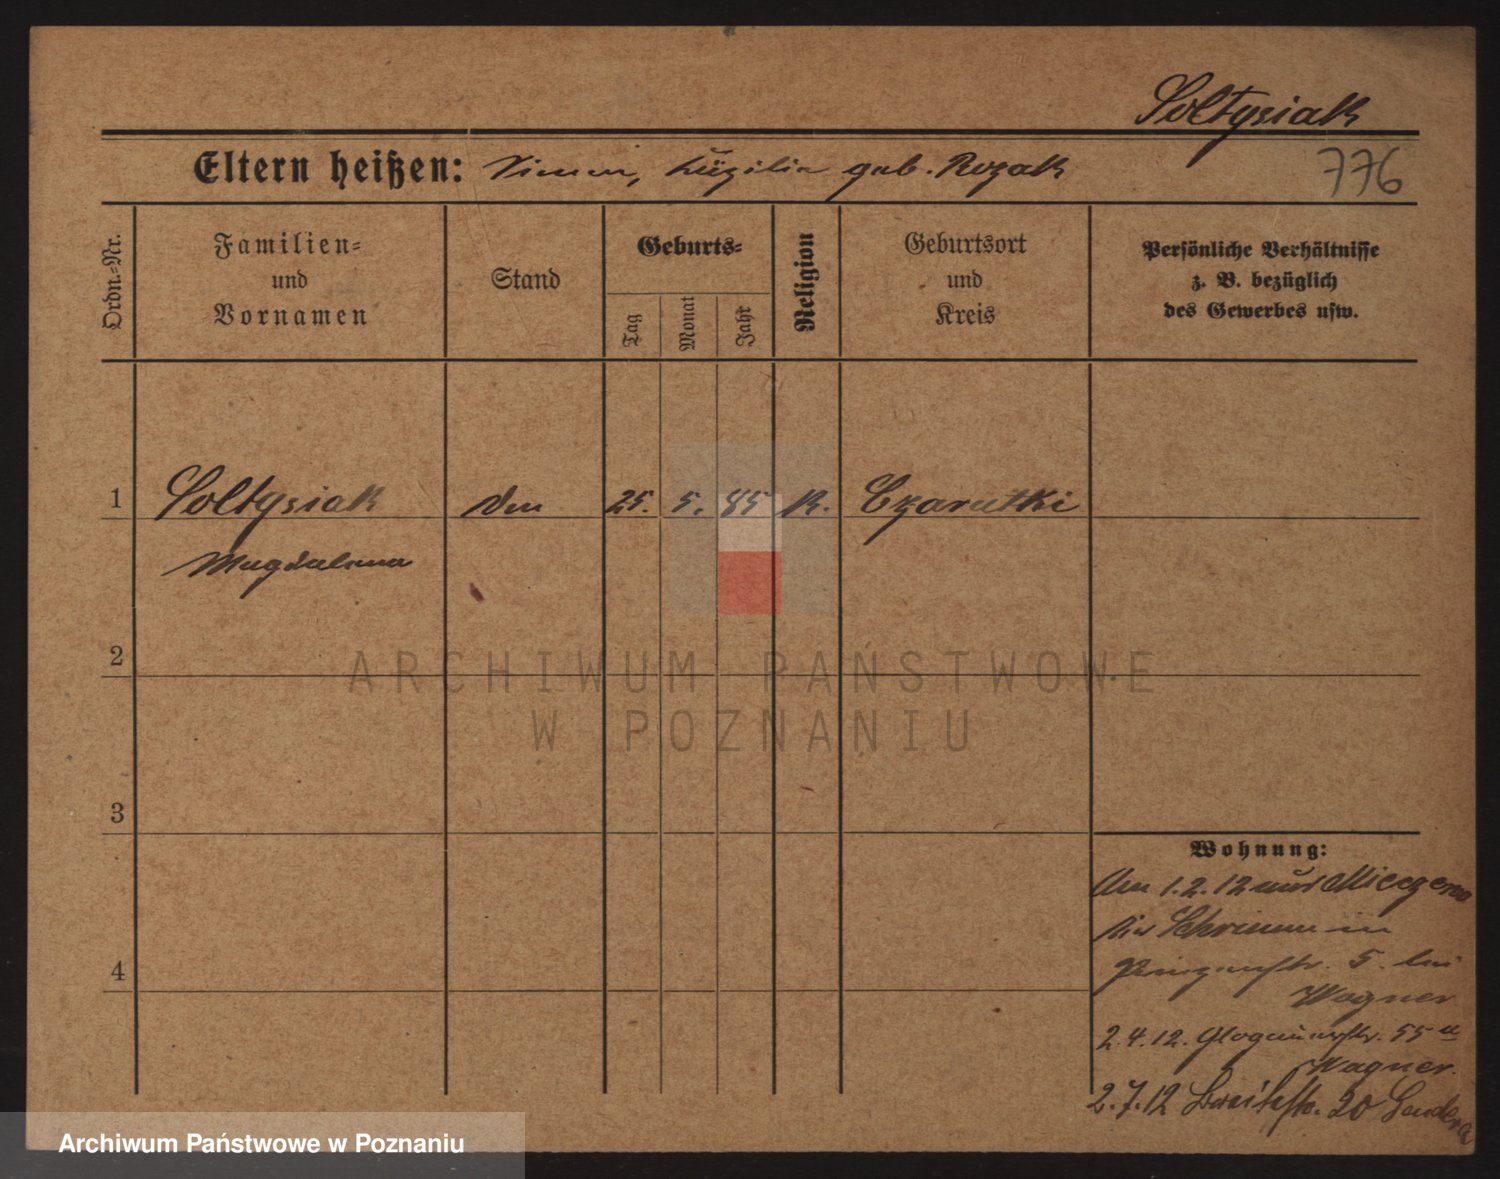 Soltysiak
Eltern heißen: Simon, Cäzilie geb. Rozak
776
Ordn.-Nr.
Familien-
und
Vornamen
Stand
Geburts-
Tag
Monat
Jahr
Religion
Geburtsort
und
Kreis
Persönliche Verhältnisse
z. B. bezüglich
des Gewerbes usw.
1 Soltysiak 25. 5. 85 K. Czarutki
Magdalena
2
3
4
Wohnung:
Am 1.2.12 aus
Schrimm in
5. bei
Wagner
2.4.12. Glogauerstr. 55
Wagner.
2.7.12 Breitestr. 20
ARCHIWUM PAŃSTWOWE
W POZNANIU
Archiwum Państwowe w Poznaniu